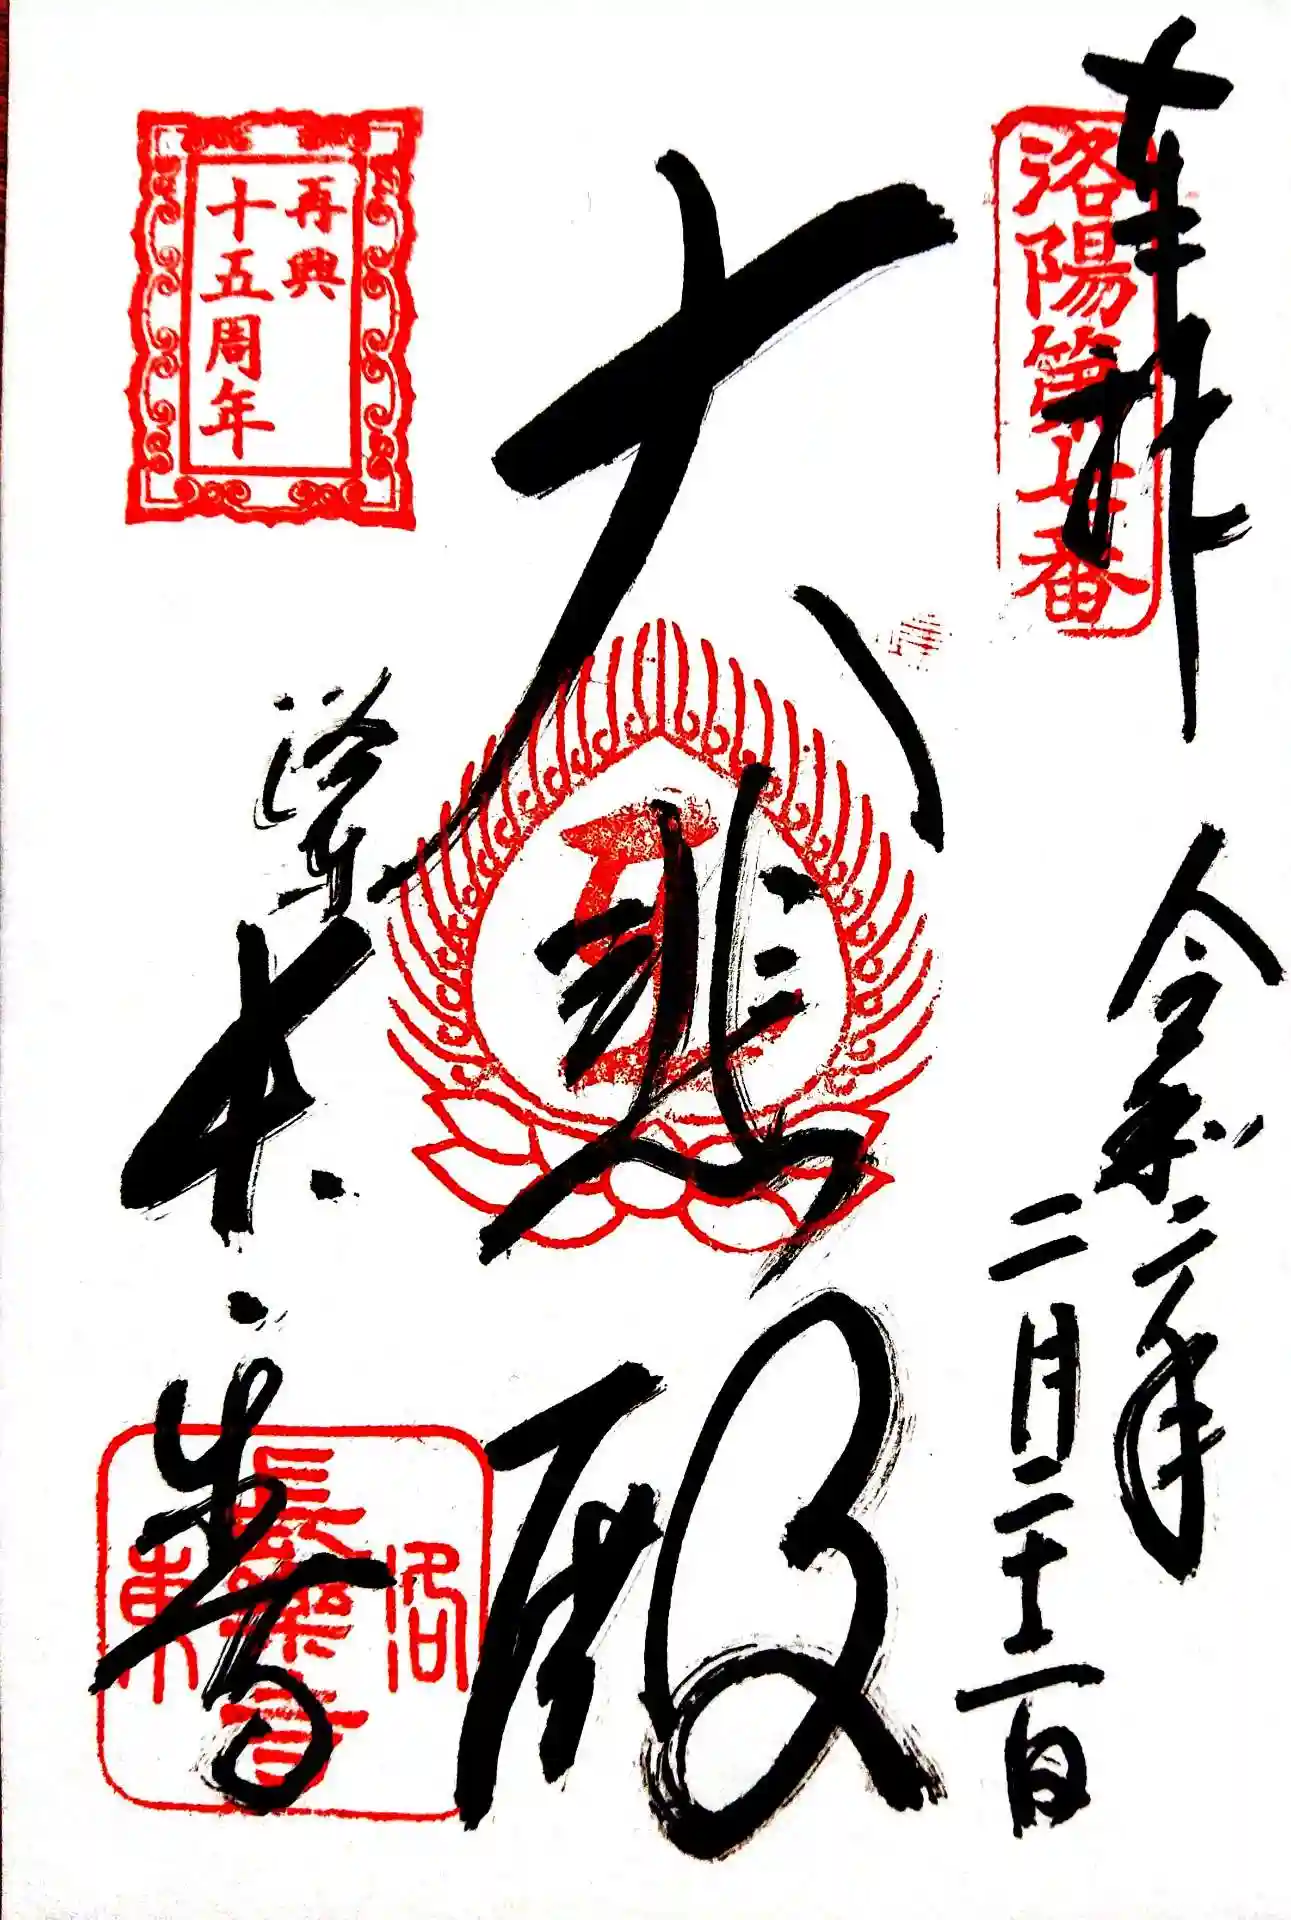 奉拝
洛陽第七番
令和二年
二月二十二日
大悲殿
再興
十五周年
洛東
長楽寺
洛東
長樂寺